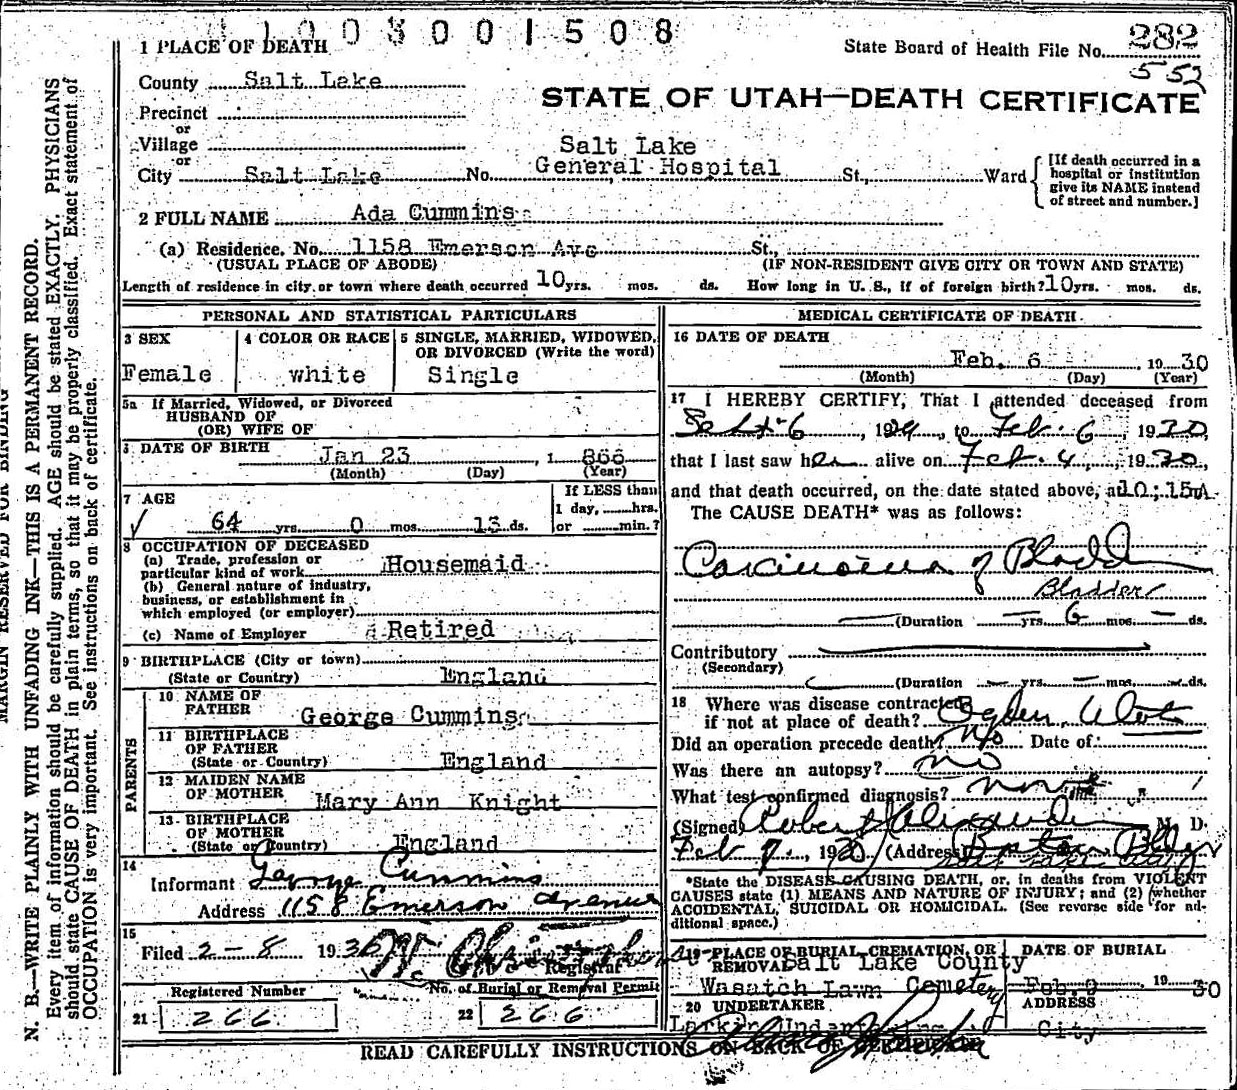 1003001508
State Board of Health File No. 282
552
1 PLACE OF DEATH
County Salt Lake
STATE OF UTAH—DEATH CERTIFICATE
Precinct
or
Village
or
City Salt Lake No. Salt Lake General Hospital St., Ward
[If death occurred in a hospital or institution give its NAME instead of street and number.]
2 FULL NAME Ada Cummins
(a) Residence. No. 1158 Emerson Ave St.,
(USUAL PLACE OF ABODE) (IF NON-RESIDENT GIVE CITY OR TOWN AND STATE)
Length of residence in city or town where death occurred 10 yrs. mos. ds. How long in U. S., if of foreign birth? 10 yrs. mos. ds.
PERSONAL AND STATISTICAL PARTICULARS
3 SEX
Female
4 COLOR OR RACE
white
5 SINGLE, MARRIED, WIDOWED, OR DIVORCED (Write the word)
Single
5a If Married, Widowed, or Divorced
HUSBAND OF
(OR) WIFE OF
DATE OF BIRTH
Jan 23, 1866
(Month) (Day) (Year)
7 AGE
64 yrs. 0 mos. 13 ds.
If LESS than
1 day, hrs.
or min.?
8 OCCUPATION OF DECEASED
(a) Trade, profession or
particular kind of work Housemaid
(b) General nature of industry,
business, or establishment in
which employed (or employer)
(c) Name of Employer Retired
9 BIRTHPLACE (City or town)
(State or Country) England
PARENTS
10 NAME OF
FATHER George Cummins
11 BIRTHPLACE
OF FATHER
(State or Country) England
12 MAIDEN NAME
OF MOTHER Mary Ann Knight
13 BIRTHPLACE
OF MOTHER
(State or Country) England
14
Informant George Cummins
Address 1158 Emerson avenue
15
Filed 2-8 1930
Registrar
Registered Number
21 266
No. of Burial or Removal Permit
22 266
MEDICAL CERTIFICATE OF DEATH
16 DATE OF DEATH
Feb. 6 1930
(Month) (Day) (Year)
17 I HEREBY CERTIFY, That I attended deceased from
Sept 6, 1929, to Feb. 6, 1930,
that I last saw her alive on Feb. 4, 1930,
and that death occurred, on the date stated above, at 10:15
The CAUSE DEATH* was as follows:
Carcinoma of Bladder
Bladder
(Duration — yrs. 6 mos. — ds.
Contributory
(Secondary)
(Duration — yrs. — mos. — ds.
18 Where was disease contracted
if not at place of death? Ogden, Utah
Did an operation precede death? No Date of:
Was there an autopsy? no
What test confirmed diagnosis?
(Signed) Robert Alexander M. D.
Feb 7, 1930 (Address) Boston Bldg
*State the DISEASE CAUSING DEATH, or, in deaths from VIOLENT
CAUSES state (1) MEANS AND NATURE OF INJURY; and (2) whether
ACCIDENTAL, SUICIDAL OR HOMICIDAL. (See reverse side for ad-
ditional space.)
19 PLACE OF BURIAL, CREMATION, OR
REMOVAL Salt Lake County
Wasatch Lawn Cemetery
DATE OF BURIAL
Feb. 1930
20 UNDERTAKER
Larkin
ADDRESS
City
READ CAREFULLY INSTRUCTIONS ON BACK OF CERTIFICATE
MARGIN RESERVED FOR BINDING
N. B.—WRITE PLAINLY WITH UNFADING INK—THIS IS A PERMANENT RECORD.
Every item of information should be carefully supplied. AGE should be stated EXACTLY. PHYSICIANS
should state CAUSE OF DEATH in plain terms, so that it may be properly classified. Exact statement of
OCCUPATION is very important. See instructions on back of certificate.